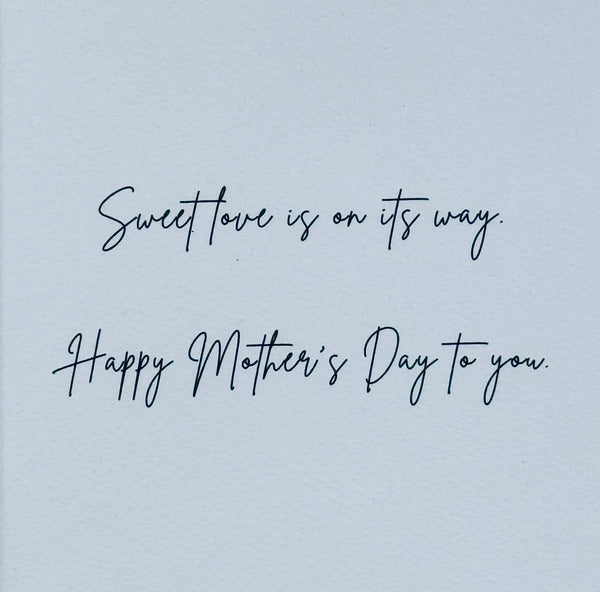 Sweet love is on its way.
Happy Mother's Day to you.